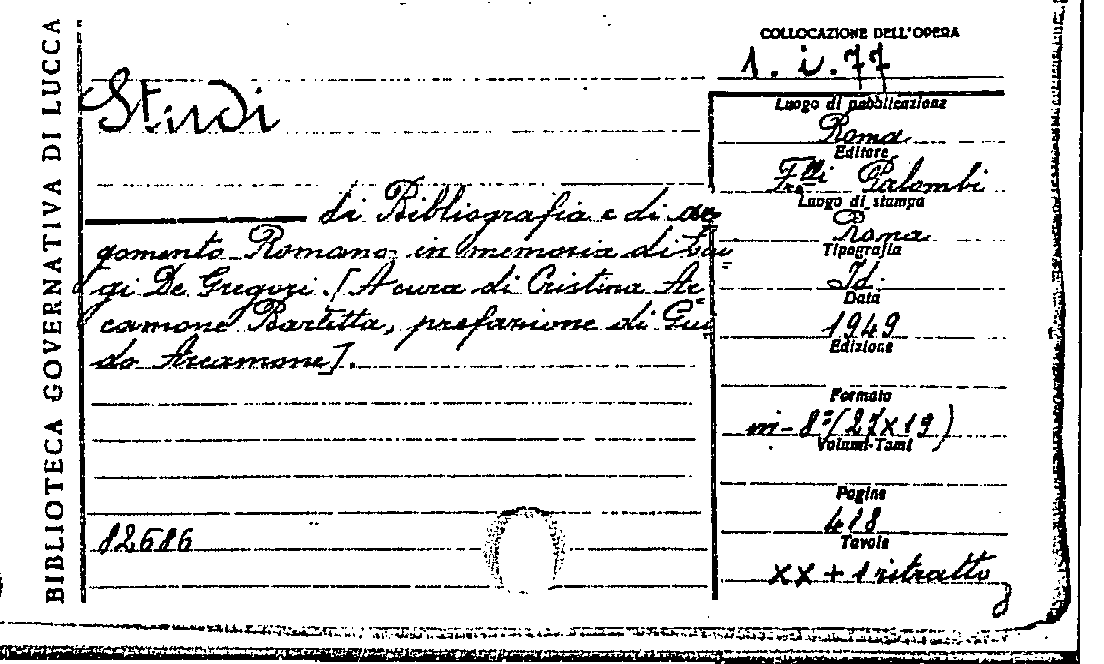 BIBLIOTECA GOVERNATIVA DI LUCCA
COLLOCAZIONE DELL'OPERA
1. i. 77
Studi
di Bibliografia e di ar=
gomento Romano in memoria di Lui=
gi De Gregori. [A cura di Cristina Ar=
camone Barletta, prefazione di Gui=
do Arcamone].
82686
Luogo di pubblicazione
Roma
Editore
F.lli Palombi
Luogo di stampa
Roma
Tipografia
Id.
Data
1949
Edizione
Formato
in-8°(27x19)
Volumi-Tomi
Pagine
418
Tavole
XX + 1 ritratto